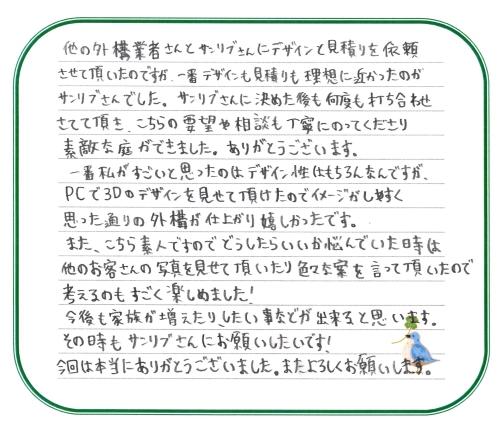 他の外構業者さんとサンリブさんにデザインと見積りを依頼
させて頂いたのですが、一番デザインも見積りも理想に近かったのが
サンリブさんでした。サンリブさんに決めた後も何度も打ち合わせ
さてて頂き、こちらの要望や相談も丁寧にのってくださり
素敵な庭ができました。ありがとうございます。
一番私がすごいと思ったのはデザイン性はもちろんなんですが、
PCで3Dのデザインを見せて頂けたのでイメージがしやすく
思った通りの外構が仕上がり嬉しかったです。
また、こちら素人ですのでどうしたらいいか悩んでいた時は
他のお客さんの写真を見せて頂いたり色々な案を言って頂いたので
考えるのもすごく楽しめました!
今後も家族が増えたり、したい事などが出来ると思います。
その時もサンリブさんにお願いしたいです!
今回は本当にありがとうございました。またよろしくお願いします。